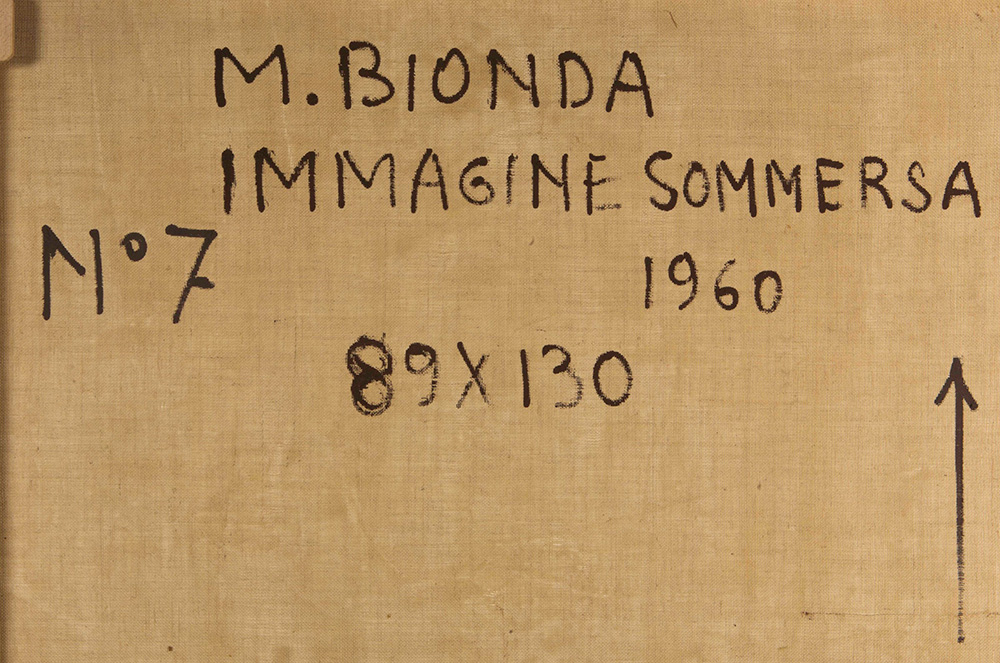 M. BIONDA
IMMAGINE SOMMERSA
Nº 7
1960
89 X 130